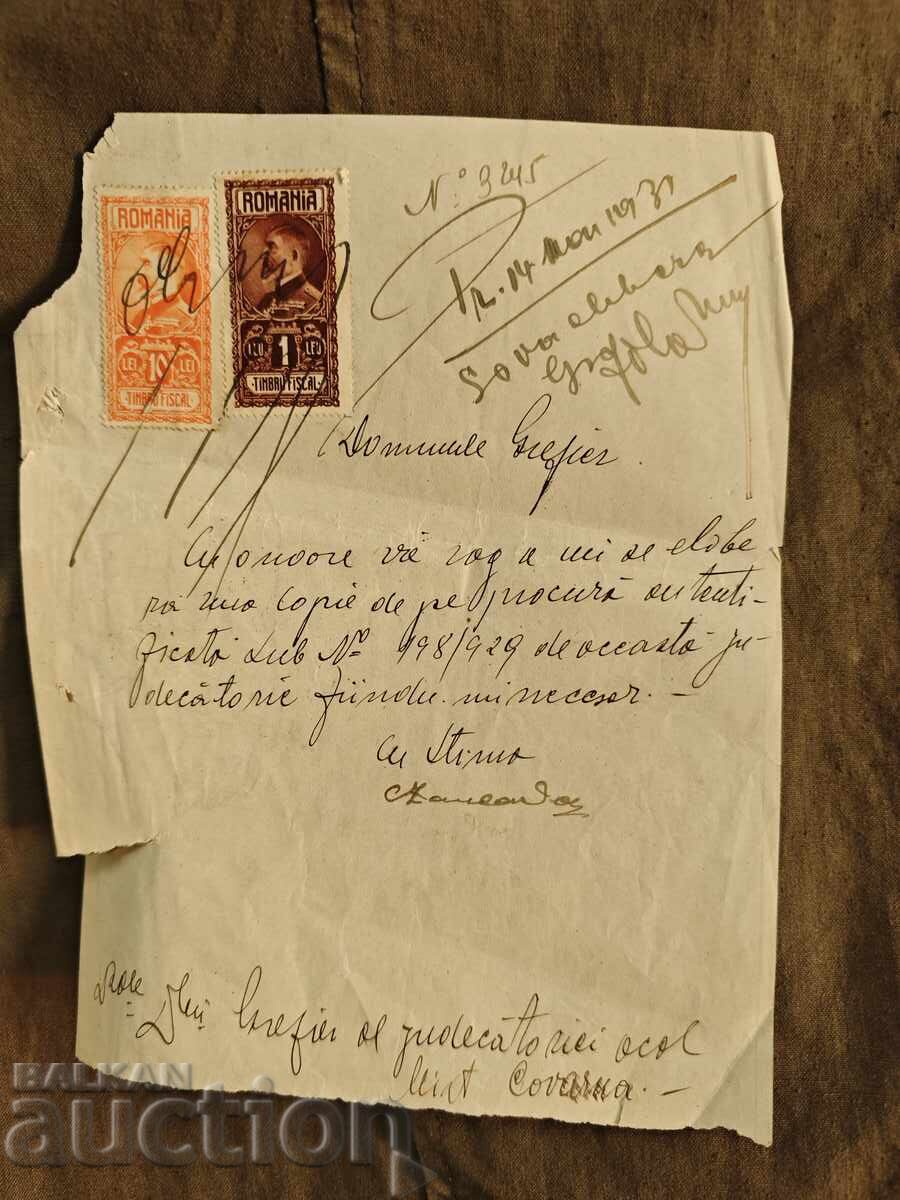 ROMANIA
10
LEI LEI
TIMBRU FISCAL
ROMANIA
LEU 1 LEU
TIMBRU FISCAL
No 3245
Pr. 14 Mai 1931
Se va elibera
Domnule Grefier
Cu onoare vă rog a mi se elibe
ra una copie de pe procură autenti-
ficată sub No 198/929 de această ju-
decătorie fiindu-mi necesar. -
Cu stima
Dlui Grefier al judecătoriei ocol
Mixt Covarna. -
BALKAN
auction